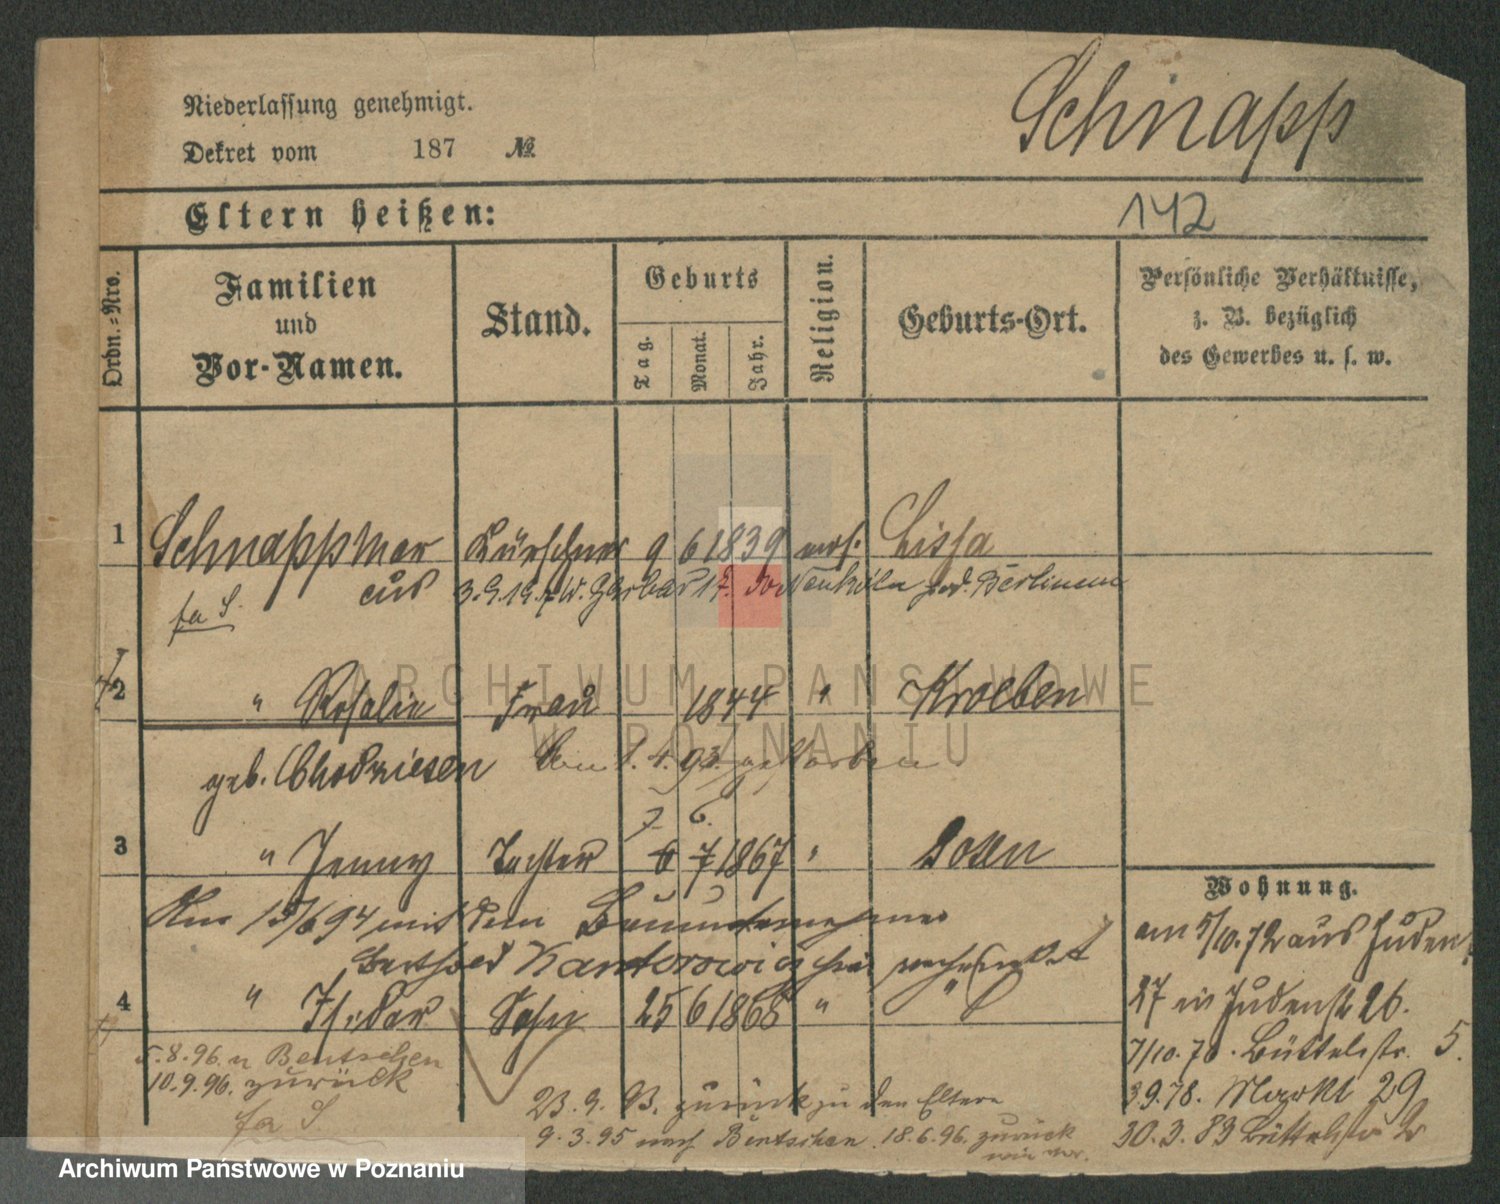 Schnapp
Niederlassung genehmigt.
Dekret vom 187 №
Eltern heißen:
142
Ordn.=Nro.
Familien
und
Vor-Namen.
Stand.
Geburts
Tag.
Monat.
Jahr.
Religion.
Geburts-Ort.
Persönliche Verhältnisse,
z. B. bezüglich
des Gewerbes u. s. w.
1 Schnapp Kürschner 9 6 1839 mos. Lissa
aus 3.9.19
fa S.
2 " Rosalie Frau 1844 " Kroeben
geb. Chodziesen 8.4.93 gestorben
7. 6.
3 " Jenny Tochter 6 7 1867 " Posen
Am 15/6 94 mit dem Bauunternehmer
Berthold Kantorowicz hier verheiratet
4 " Isidor Sohn 25 6 1868 " "
5.8.96. n Bentschen
10.9.96. zurück
fa S
23.9.93. zurück zu den Eltern
9.3.95 nach Bentschen. 18.6.96. zurück
wie vor.
Wohnung.
am 5/10.72 aus Juden
27 in Judenstr 26.
7/10.76. Büttelstr. 5.
3.9.78. Markt 29
30.3.83 Büttelstr
ARCHIWUM PAŃSTWOWE
W POZNANIU
Archiwum Państwowe w Poznaniu